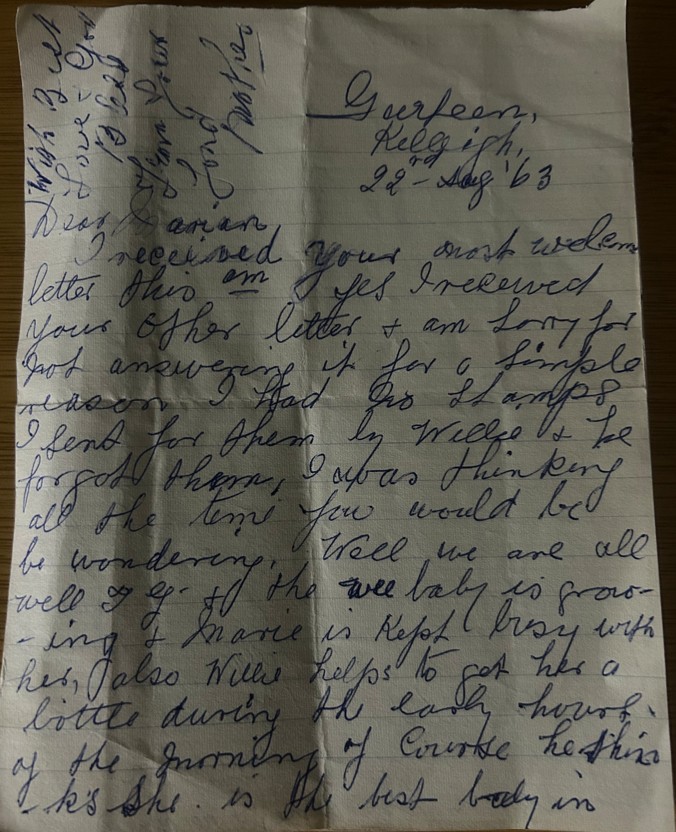 With Best
Love & God
Bless
From Your
Fond
Gurteen,
Killeigh,
22nd - Aug '63
Dear
I received your most welcom
letter this am Yes I received
your other letter & am sorry for
not answering it for a simple
reason I had no stamps
I sent for them by Willie & he
forgot them, I was thinking
all the time you would be
be wondering. Well we are all
well T G. & the wee baby is grow-
-ing & Marie is kept busy with
her, also Willie helps to get her a
bottle during the early hours.
of the morning of course he thin
-k's she. is the best baby in